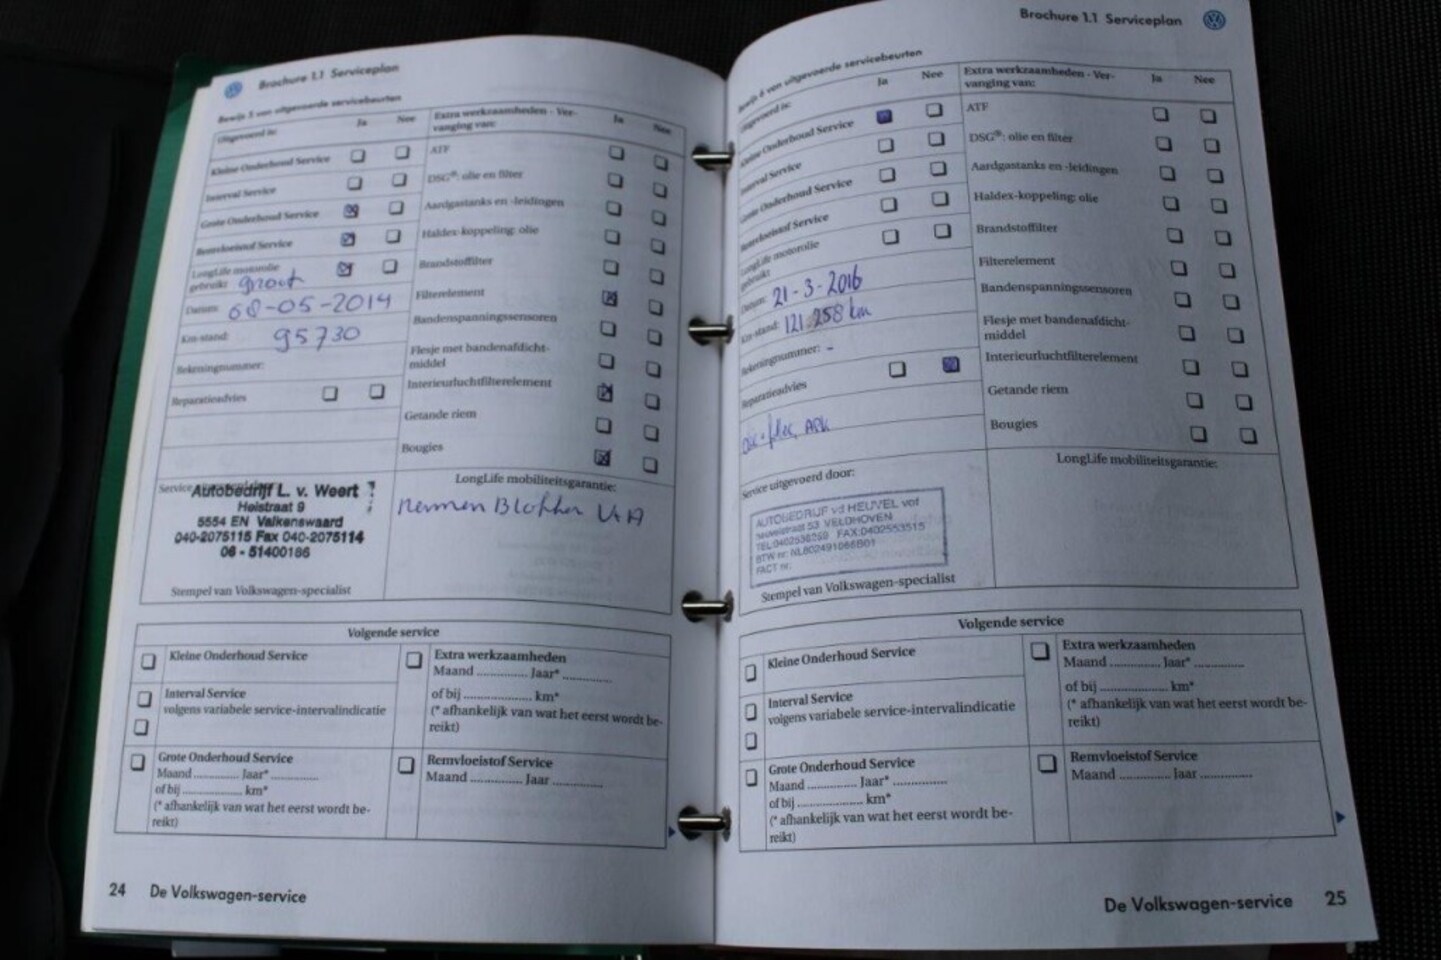 Brochure 1.1 Serviceplan
Bewijs 5 van uitgevoerde servicebeurten
Uitgevoerd is:
Ja
Nee
Kleine Onderhoud Service
Interval Service
Grote Onderhoud Service
Remvloeistof Service
LongLife motorolie
gebruikt groot
Datum: 08-05-2014
Km-stand: 95730
Rekeningnummer:
Reparatieadvies
Extra werkzaamheden - Ver-
vanging van:
Ja
Nee
ATF
DSG®: olie en filter
Aardgastanks en -leidingen
Haldex-koppeling: olie
Brandstoffilter
Filterelement
Bandenspanningssensoren
Flesje met bandenafdicht-
middel
Interieurluchtfilterelement
Getande riem
Bougies
Autobedrijf L. v. Weert
Heistraat 9
5554 EN Valkenswaard
040-2075115 Fax 040-2075114
06 - 51400186
Stempel van Volkswagen-specialist
LongLife mobiliteitsgarantie:
Remmen Blokken V+A
Volgende service
Kleine Onderhoud Service
Interval Service
volgens variabele service-intervalindicatie
Grote Onderhoud Service
Maand ............. Jaar* .............
of bij ...................... km*
(* afhankelijk van wat het eerst wordt be-
reikt)
Extra werkzaamheden
Maand .............. Jaar* .............
of bij .................... km*
(* afhankelijk van wat het eerst wordt be-
reikt)
Remvloeistof Service
Maand .............. Jaar .............
24 De Volkswagen-service
Brochure 1.1 Serviceplan
Bewijs 6 van uitgevoerde servicebeurten
Uitgevoerd is:
Ja
Nee
Kleine Onderhoud Service
Interval Service
Grote Onderhoud Service
Remvloeistof Service
LongLife motorolie
gebruikt
Datum: 21-3-2016
Km-stand: 121.258 km
Rekeningnummer: -
Reparatieadvies
APK
Extra werkzaamheden - Ver-
vanging van:
Ja
Nee
ATF
DSG®: olie en filter
Aardgastanks en -leidingen
Haldex-koppeling: olie
Brandstoffilter
Filterelement
Bandenspanningssensoren
Flesje met bandenafdicht-
middel
Interieurluchtfilterelement
Getande riem
Bougies
Service uitgevoerd door:
AUTOBEDRIJF vd HEUVEL vof
53 VELDHOVEN
FAX:0402553515
BTW nr: NL802491066B01
FACT nr:
Stempel van Volkswagen-specialist
LongLife mobiliteitsgarantie:
Volgende service
Kleine Onderhoud Service
Interval Service
volgens variabele service-intervalindicatie
Grote Onderhoud Service
Maand .............. Jaar* ...............
of bij ...................... km*
(* afhankelijk van wat het eerst wordt be-
reikt)
Extra werkzaamheden
Maand .............. Jaar* .............
of bij .................... km*
(* afhankelijk van wat het eerst wordt be-
reikt)
Remvloeistof Service
Maand .............. Jaar .............
De Volkswagen-service 25